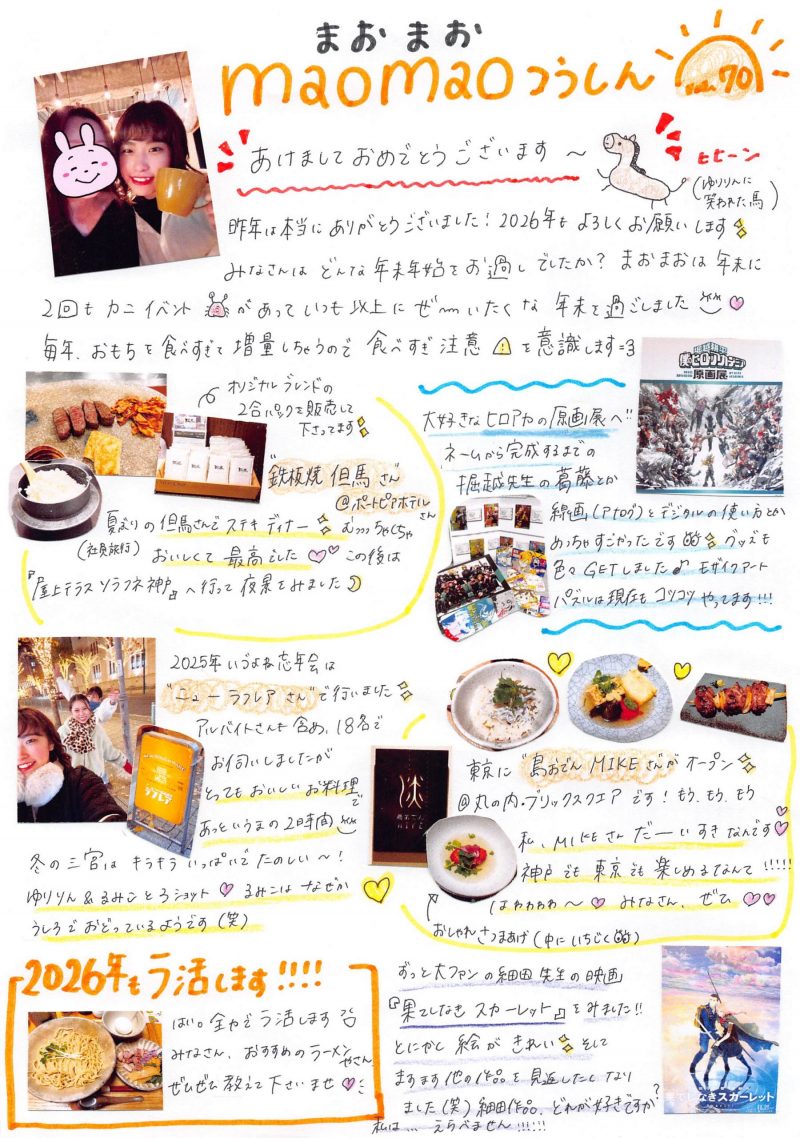 まおまお
maomaoつうしん
vol.70
あけましておめでとうございます～
ヒヒーン
(ゆりりんに
笑われた馬)
昨年は本当にありがとうございました！2026年もよろしくお願いします
みなさんはどんな年末年始をお過しでしたか？まおまおは年末に
2回もカニイベントがあっていつも以上にぜーいたくな年末を過ごしました
毎年、おもちを食べすぎて増量しちゃうので食べすぎ注意を意識します=3
オリジナルブレンドの
2合パックを販売して
下さってます
"鉄板焼 但馬さん"
@ポートピアホテルさん
夏ぶりの但馬さんでステキディナーむっっちゃくちゃ
(社員旅行)
おいしくて最高でした この後は
『屋上テラスソラフネ神戸』へ行って夜景をみました
大好きなヒロアカの原画展へ!!
ネームから完成するまでの
堀越先生の葛藤とか
線画(アナログ)とデジタルの使い方とか
めっちゃすごかったです グッズも
色々GETしました♪ モザイクアート
パズルは現在もコツコツやってます!!!
僕のヒーローアカデミア
原画展
2025年いづよね忘年会は
"ニューラフレアさん"で行いました
アルバイトさんも含め、18名で
お伺いしましたが
とってもおいしいお料理で
あっというまの2時間
冬の三宮はキラキラいっぱいでたのしい～！
ゆりりん&るみことろショット るみこはなぜか
うしろでおどっているようです(笑)
東京に"鳥おでんMIKEさん"がオープン
@丸の内・ブリックスクエアです！もう、もう、もう
私、MIKEさんだーいすきなんです
神戸でも東京でも楽しめるなんて!!!!!
はわわわわ～ みなさん、ぜひ
おしゃれさつまあげ(中にいちじく)
MIKE
2026年もラ活します!!!!
はい。全力でラ活します
みなさん、おすすめのラーメンやさん、
ぜひぜひ教えて下さいませ
ずっと大ファンの細田先生の映画
『果てしなきスカーレット』をみました!!
とにかく絵がきれい そして
ますます他の作品を見返したくなり
ました(笑)細田作品、どれが好きですか？
私は…えらべません!!!!!
果てしなきスカーレット